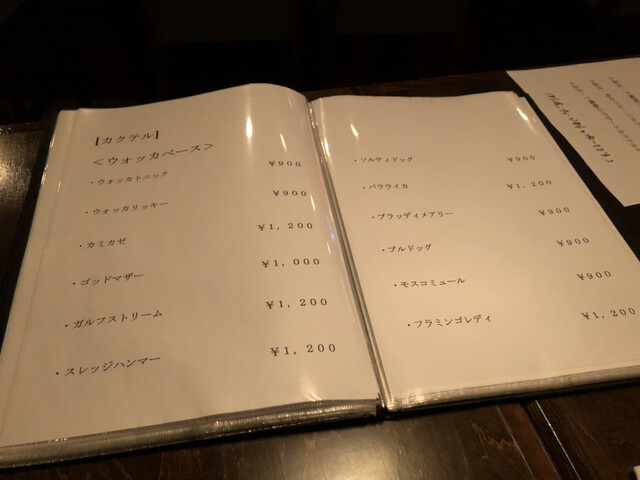 【カクテル】
＜ウオッカベース＞
・ウォッカトニック ￥900
・ウオッカリッキー ￥900
・カミカゼ ￥1，200
・ゴッドマザー ￥1，000
・ガルフストリーム ￥1，200
・スレッジハンマー ￥1，200
・ソルティドッグ ￥900
・バラライカ ￥1，200
・ブラッディメアリー ￥900
・ブルドッグ ￥900
・モスコミュール ￥900
・フラミンゴレディ ￥1，200